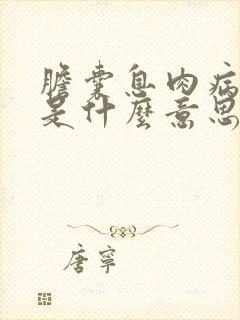 膽囊息肉病
是什麼意思
唐寧